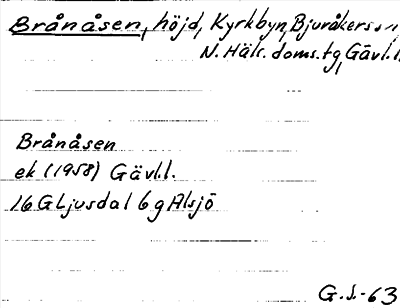 Brånåsen, höjd, Kyrkbyn, Bjuråkers sn,
N. Häls. doms. tg, Gävl.l.
Brånåsen
ek (1958) Gävl.l.
16 G Ljusdal 6 g Alsjö
G.J.-63